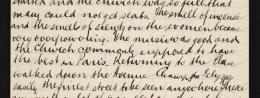 and the church was so full that
many could not get seats. The smell of incense
and the smell of scents on the women became
very overpowering. The music was good and
the Church commonly supposed to have
the best in Paris. Returning to the
walked down the Avenue Champs de Elysees
easily the finest street to be seen anywhere. There